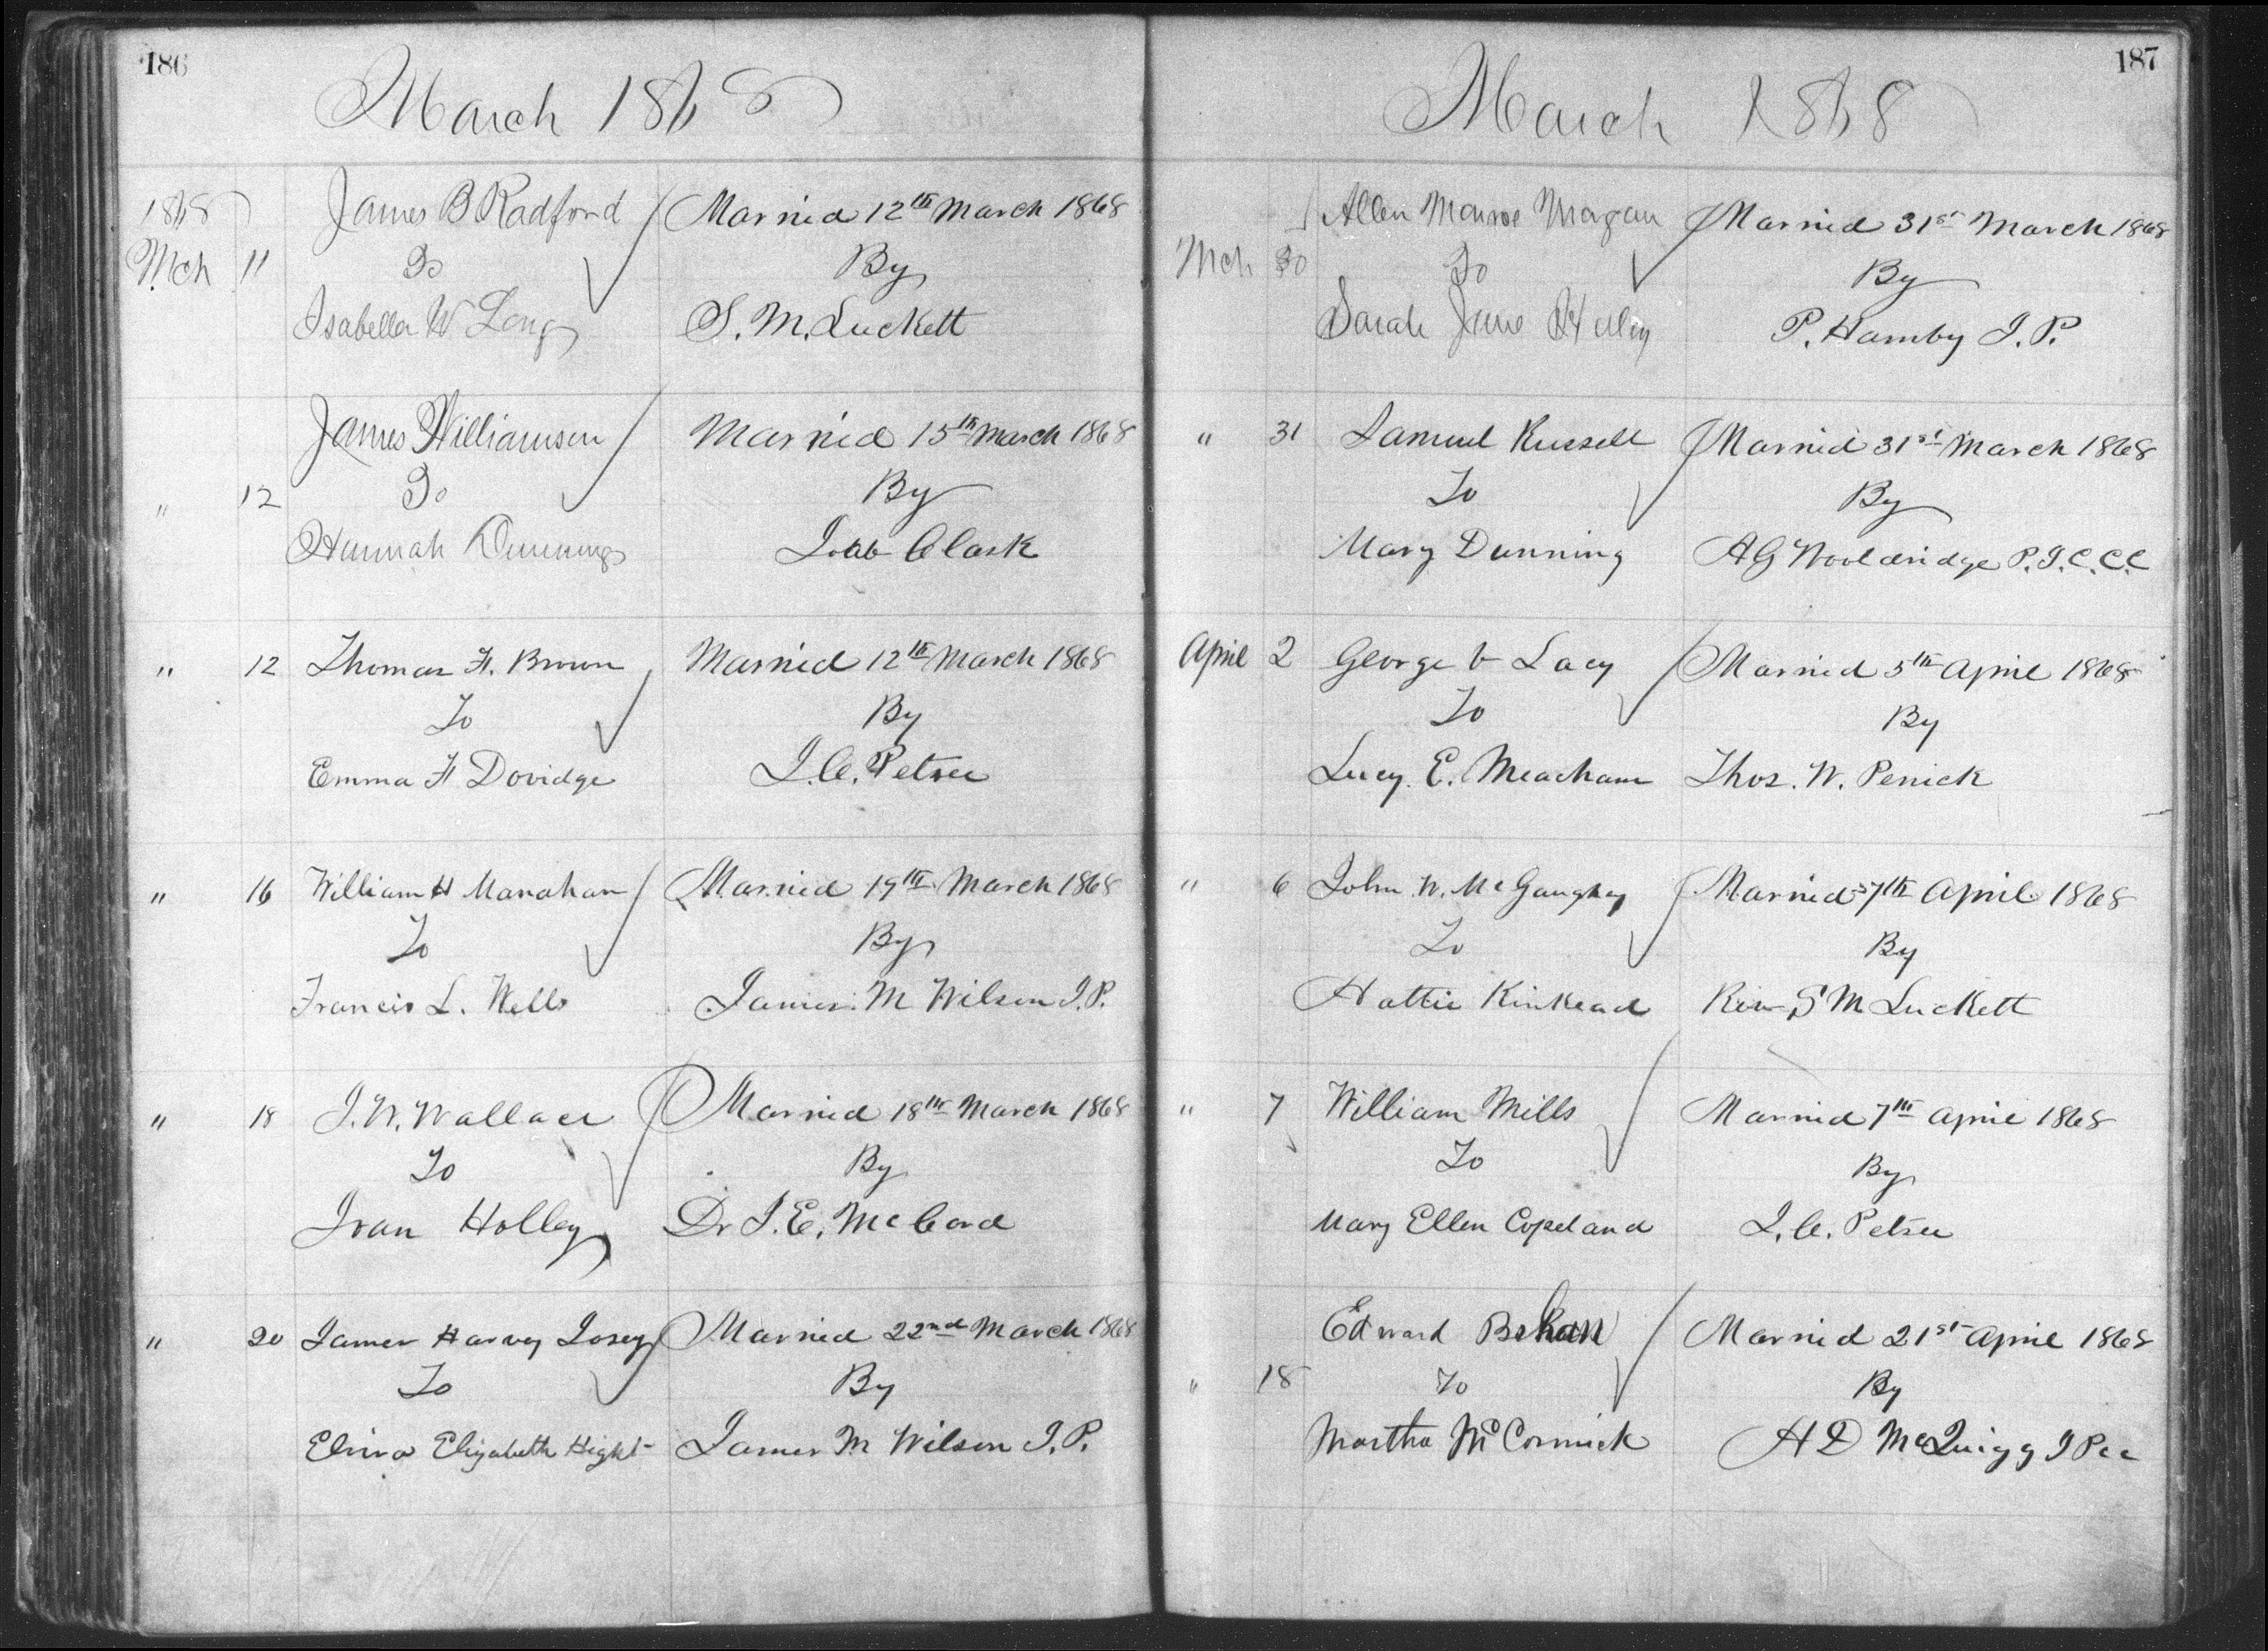 186
March 1868
1868
Mch 11 James B Radford Married 12th March 1868
To By
Isabella W Long S. M. Luckett
James Williamson Married 15th March 1868
" 12 To By
Hannah Dunning Clark
" 12 Thomas H. Brown Married 12th March 1868
To By
Emma H Dovidge J. C. Petree
" 16 William H Manahan Married 19th March 1868
To By
Francis L. Wells James M Wilson J.P.
" 18 J. W. Wallace Married 18th March 1868
To By
Holley Dr J. E. McCord
" 20 James Harvey Losey Married 22nd March 1868
To By
Elizabeth Hight James M Wilson J.P.
187
March 1868
Allen Monroe Morgan Married 31st March 1868
Mch 30 To By
Sarah Jane P. Hamby J.P.
" 31 Samuel Russell Married 31st March 1868
To By
Mary Dunning A G Wooldridge P.J.C.C.C
April 2 George Lacy Married 5th April 1868
To By
Lucy E. Meacham Thos. W. Penick
" 6 John W. McGaughey Married 7th April 1868
To By
Hattie Kinkead Rev S M Luckett
" 7 William Mills Married 7th April 1868
To By
Mary Ellen Copeland J. C. Petree
Edward Behan Married 21st April 1868
" 18 To By
Martha McCormick A D McQuigg J P